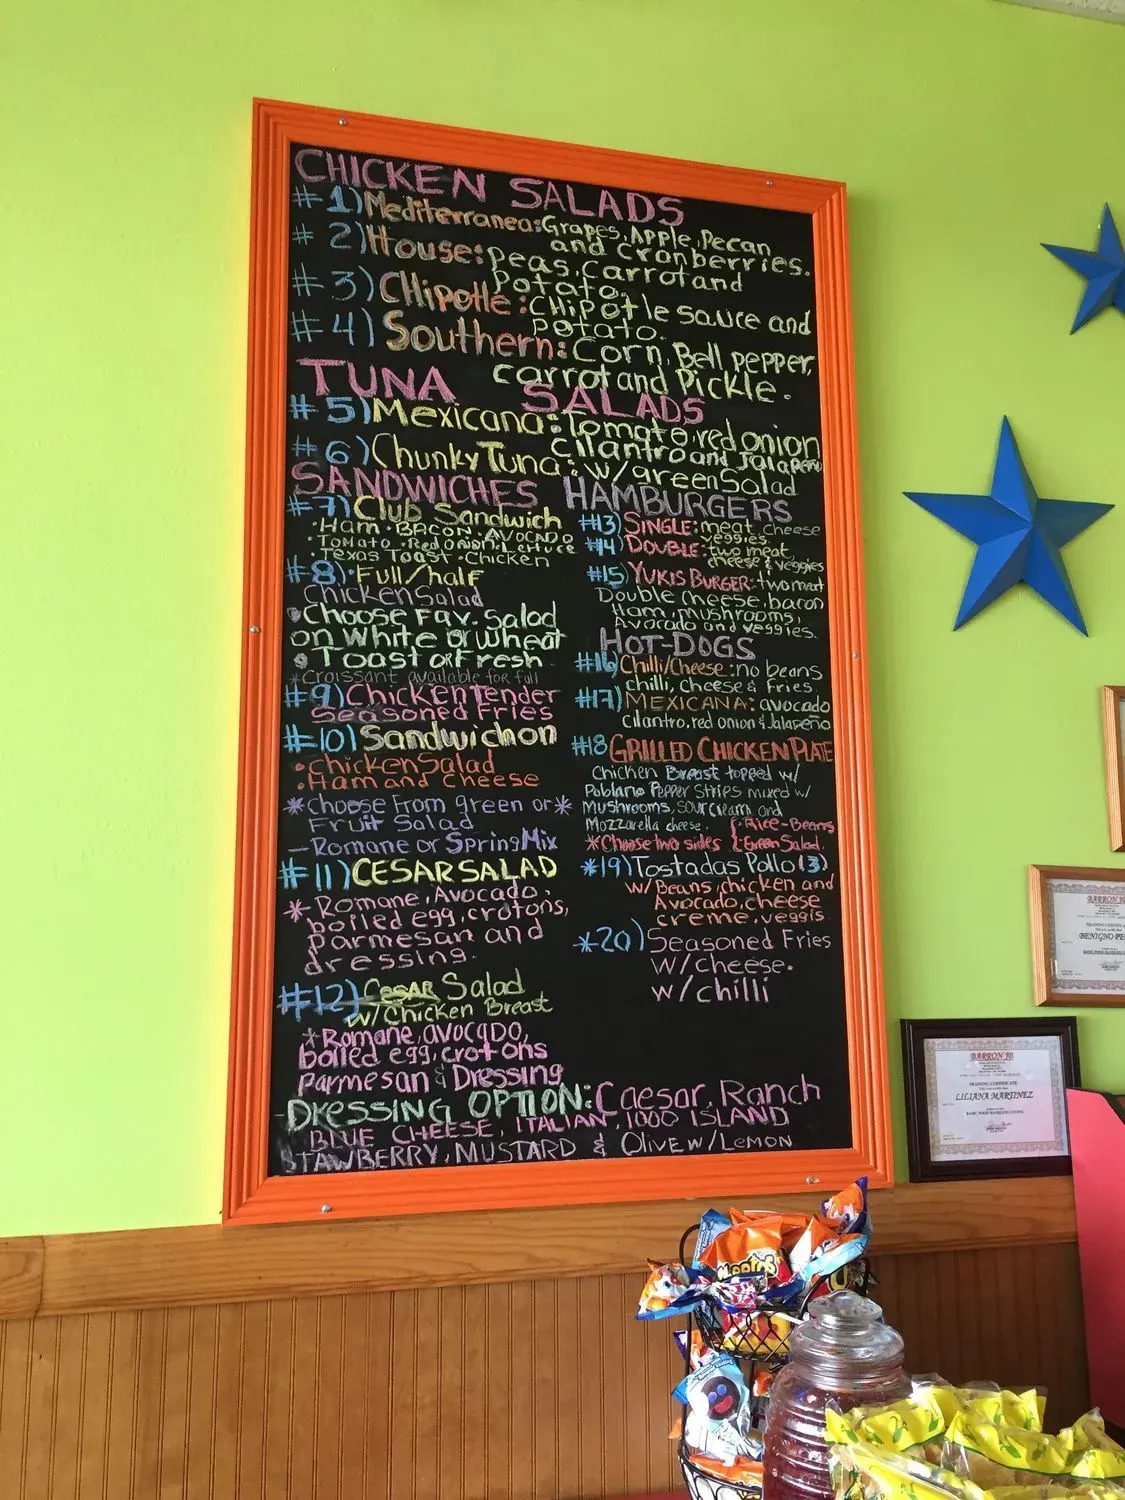 CHICKEN SALADS
# 1) Mediterranea: Grapes, Apple, Pecan
and Cranberries.
# 2) House: peas, carrot and
Potato.
# 3) CHipotle: CHipotle sauce and
potato.
# 4) Southern: Corn, Bell pepper,
carrot and Pickle.
TUNA SALADS
# 5) Mexicana: Tomato, red onion
cilantro and Jalapeño
# 6) Chunky Tuna: w/ green Salad
SANDWICHES
# 7) Club Sandwich
• Ham • BACON • AVOCADO
• Tomato • Red Onion • Lettuce
• Texas Toast • Chicken
# 8) • Full/half
Chicken Salad
• Choose Fav. Salad
on White or Wheat
• Toast or Fresh
*Croissant available for full
# 9) Chicken Tender
Seasoned Fries
# 10) Sandwichon
• chicken Salad
• Ham and cheese
* choose From green or *
Fruit Salad
— Romane or Spring Mix
# 11) CESAR SALAD
* Romane, Avocado,
boiled egg, crotons,
parmesan and
dressing.
# 12) CesAR Salad
w/ Chicken Breast
* Romane, avocado,
boiled egg, crotons
parmesan & Dressing
HAMBURGERS
#13) SINGLE: meat cheese
veggies.
#14) DOUBLE: two meat
cheese & veggies
#15) YUKIS BURGER: two meat
Double cheese, bacon
Ham, mushrooms,
Avocado and veggies.
HOT-DOGS
#16) Chilli/Cheese: no beans
chilli, cheese & Fries
#17) MEXICANA: avocado
cilantro, red onion & Jalapeño
#18 GRILLED CHICKEN PLATE
Chicken Breast topped w/
Poblano Pepper Strips mixed w/
Mushrooms, sour cream and
Mozzarella cheese. { • Rice - Beans
* Choose two sides { • Green Salad.
*19) Tostadas Pollo (3)
w/ Beans, chicken and
Avocado, cheese
creme, veggis.
*20) Seasoned Fries
w/ cheese.
w/ chilli
- DRESSING OPTION: Caesar, Ranch
BLUE CHEESE, ITALIAN, 1000 ISLAND
STAWBERRY, MUSTARD & Olive w/ Lemon
BARRON
TRAINING CERTIFICATE
BENIGNO
BARRON
TRAINING CERTIFICATE
LILIANA MARTINEZ